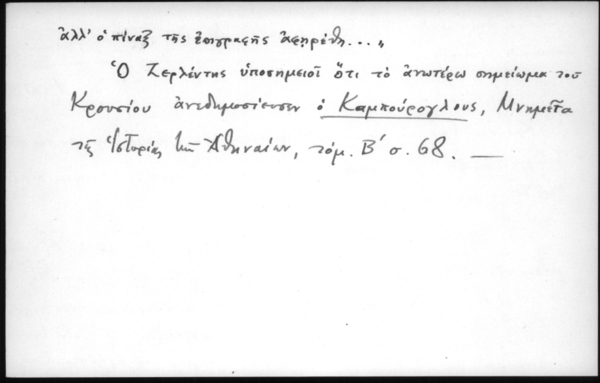 ἀλλ' ὁ πίναξ τῆς ἐπιγραφῆς ἀφῃρέθη...,,
Ὁ Ζερλέντης ὑποσημειοῖ ὅτι τὸ ἀνωτέρω σημείωμα τοῦ
Κρουσίου ἀνεδημοσίευσεν ὁ Καμπούρογλους, Μνημεῖα
τῆς Ἱστορίας τῶν Ἀθηναίων, τόμ. Β΄ σ. 68. —